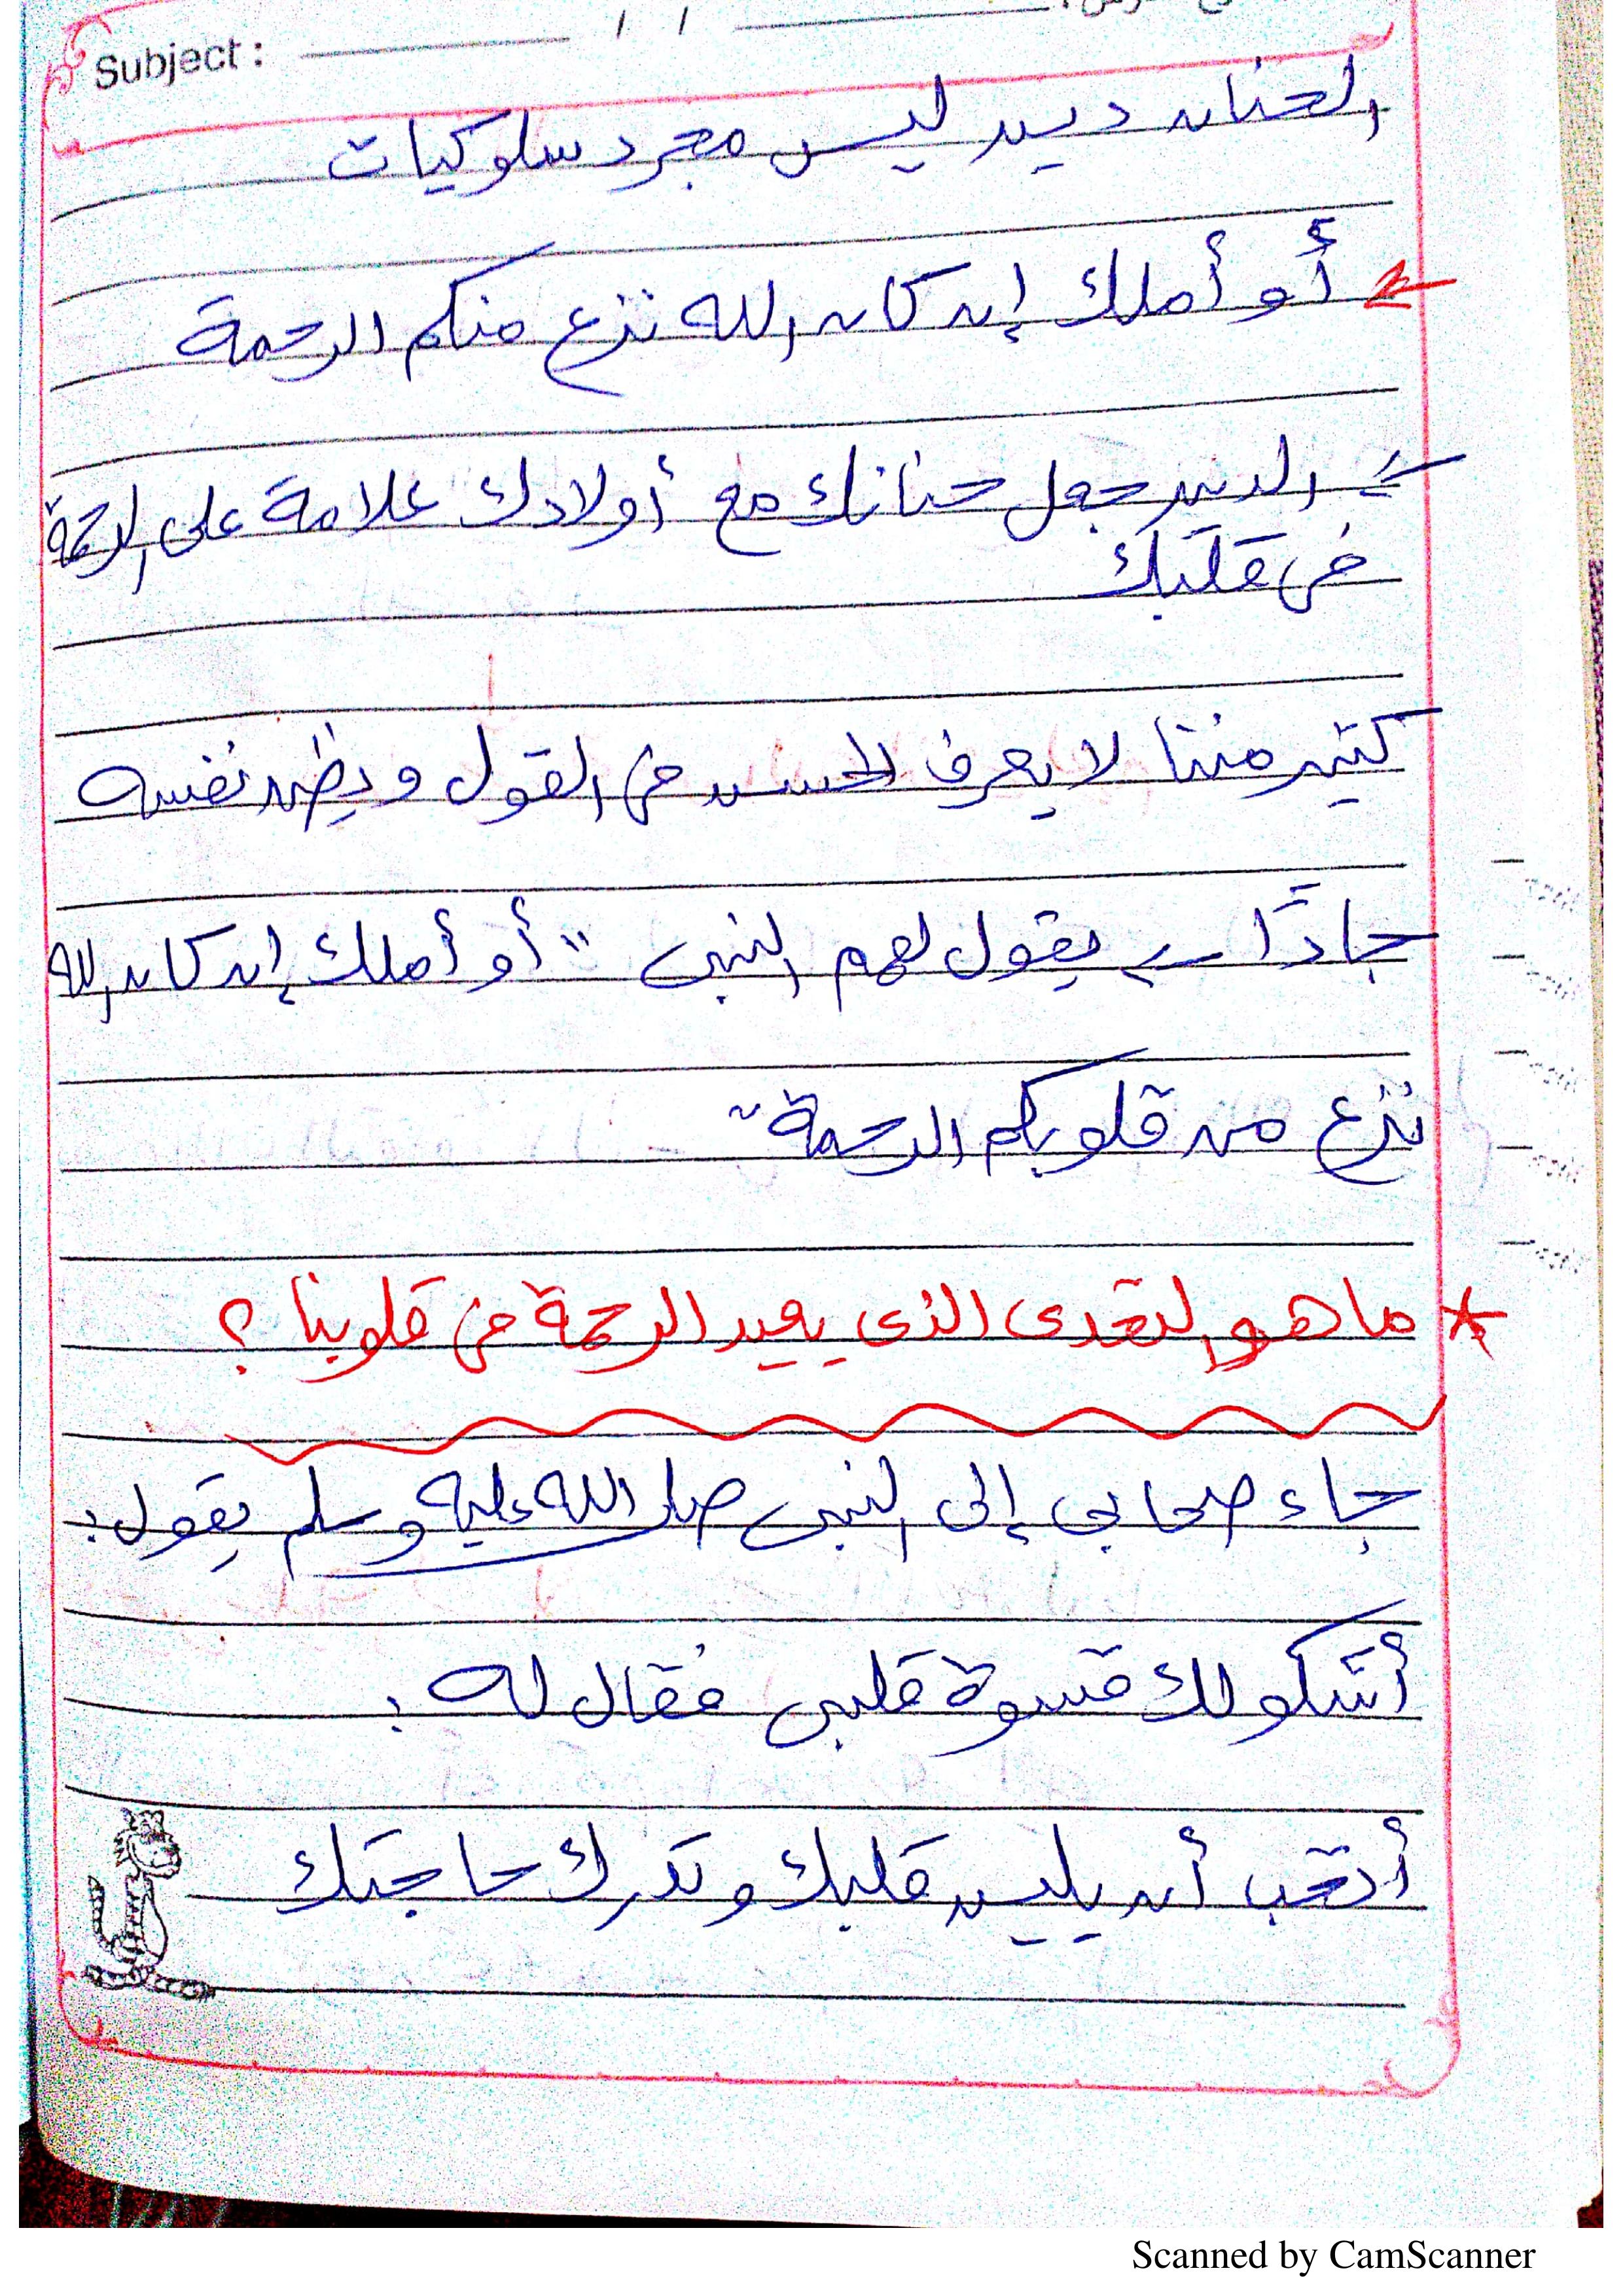 Subject : / /
الحنان دين ليس مجرد سلوكيات
أو أملك إن كان الله نزع منكم الرحمة
الدين جعل حنانك مع أولادك علامة على الرحمة
في قلبك
كتير مننا لا يعرف الحسن في القول ويظن نفسه
جادًا يقول لهم النبي " أو أملك إن كان الله
نزع من قلوبكم الرحمة "
* ما هو التعدى الذى يعيد الرحمة في قلوبنا ؟
جاء صحابي إلى النبي صلى الله عليه وسلم يقول :
أشكو لك قسوة قلبي فقال له :
أتحب أن يلين قلبك وتدرك حاجتك
Scanned by CamScanner